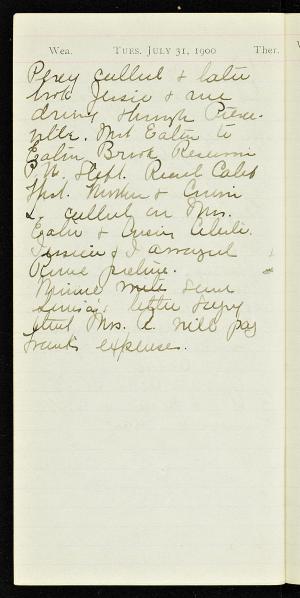 Wea. TUES. JULY 31, 1900 Ther.
Percy called & later
took Jessie & me
driving through Pierce-
ville. Mt Eaton to
Eaton Brook Reservoir
P.M. Slept. Read Caleb
West. Mother & Cousin
L. called on Mrs.
Eaton & Cousin
Jessie & I arranged
Rome picture.
Minnie wrote sent
letter saying
that Mrs. A. will pay
Frank's expenses.